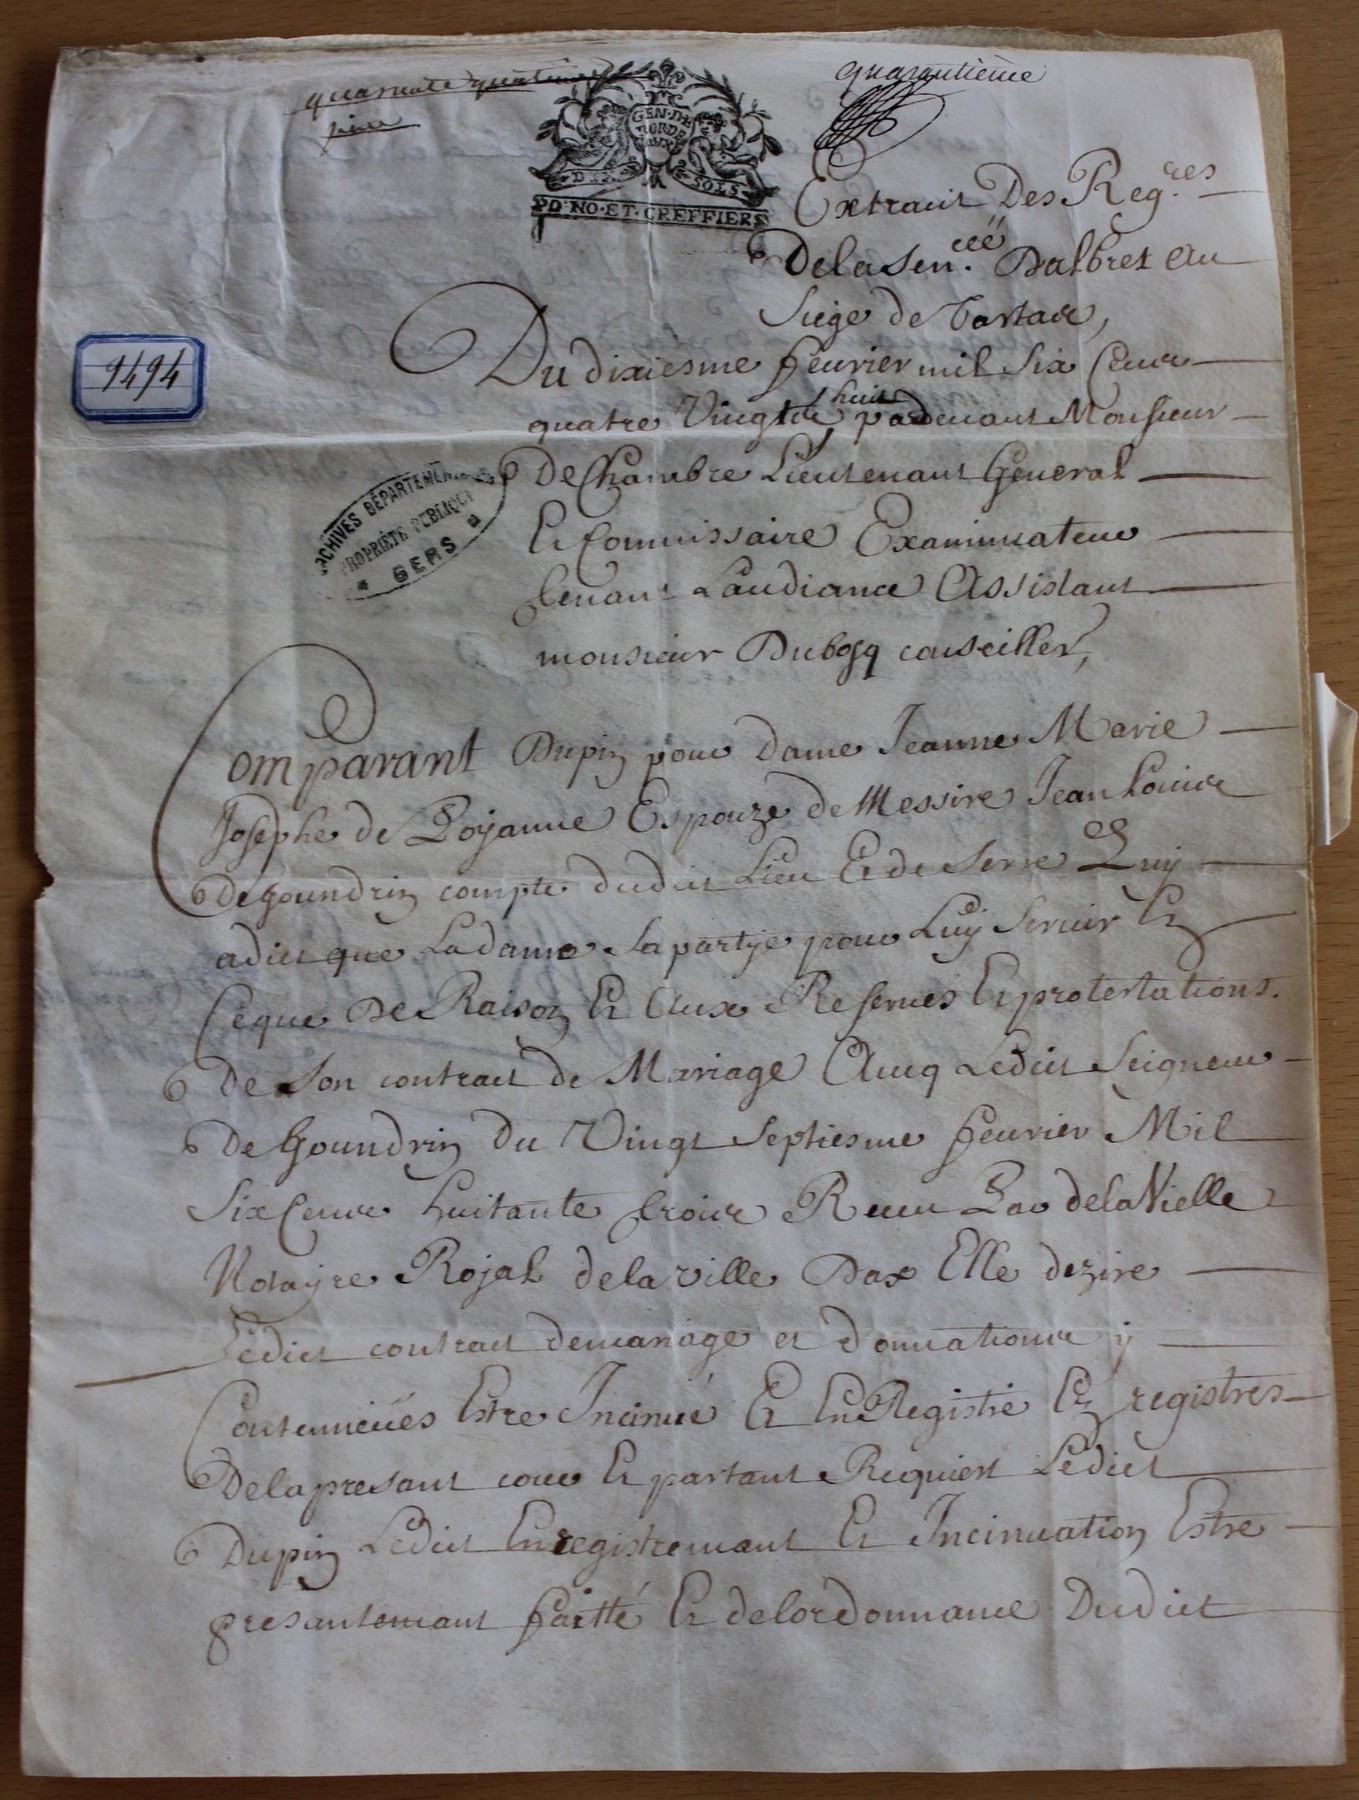 quarante quatrieme
piece
quarantieme
GEN·DE
BORDE
AUX
DIX SOLS
PO·NO·ET·GREFFIERS
Extraict Des Reg.res
De la Sen.ceé Dalbret Au
Siege de Tartas,
1494
Du dixiesme feurier mil Six Cens
huit
quatre Vingtz pardeuant Monsieur
De Chambre Lieutenant General
Et Commissaire Examinateur
tenant Laudiance Assistant
monsieur Dubosq conseiller,
ARCHIVES DÉPARTEMENTALES
PROPRIÉTÉ PUBLIQUE
GERS
Comparant Dupin pour dame Jeanne Marie
Josephe de Poyanne Espouze de Messire Jean Louis
De Goundrin compte dudit Lieu Et de Serre Quy
a dict que La dame sa partye pour Luy Seruir En
Ce que De Raison Et Aux Reserues Et protestations.
De Son contract de Mariage Aueq Ledict Seigneur
De Goundrin Du Vingt Septiesme feurier Mil
Six Cens huitante trois Receu Par de la Vielle
Notayre Royal de la ville Dax Elle dezire
Ledict contract de mariage et donnations y
Contenuëes Estre Incinué Et En Registré Ez registres
De la presant cour Et partant Requiert Ledict
Dupin Ledict Enregistremant Et Incinuation Estre
presantemant faitté Et de lordonnance Dudict